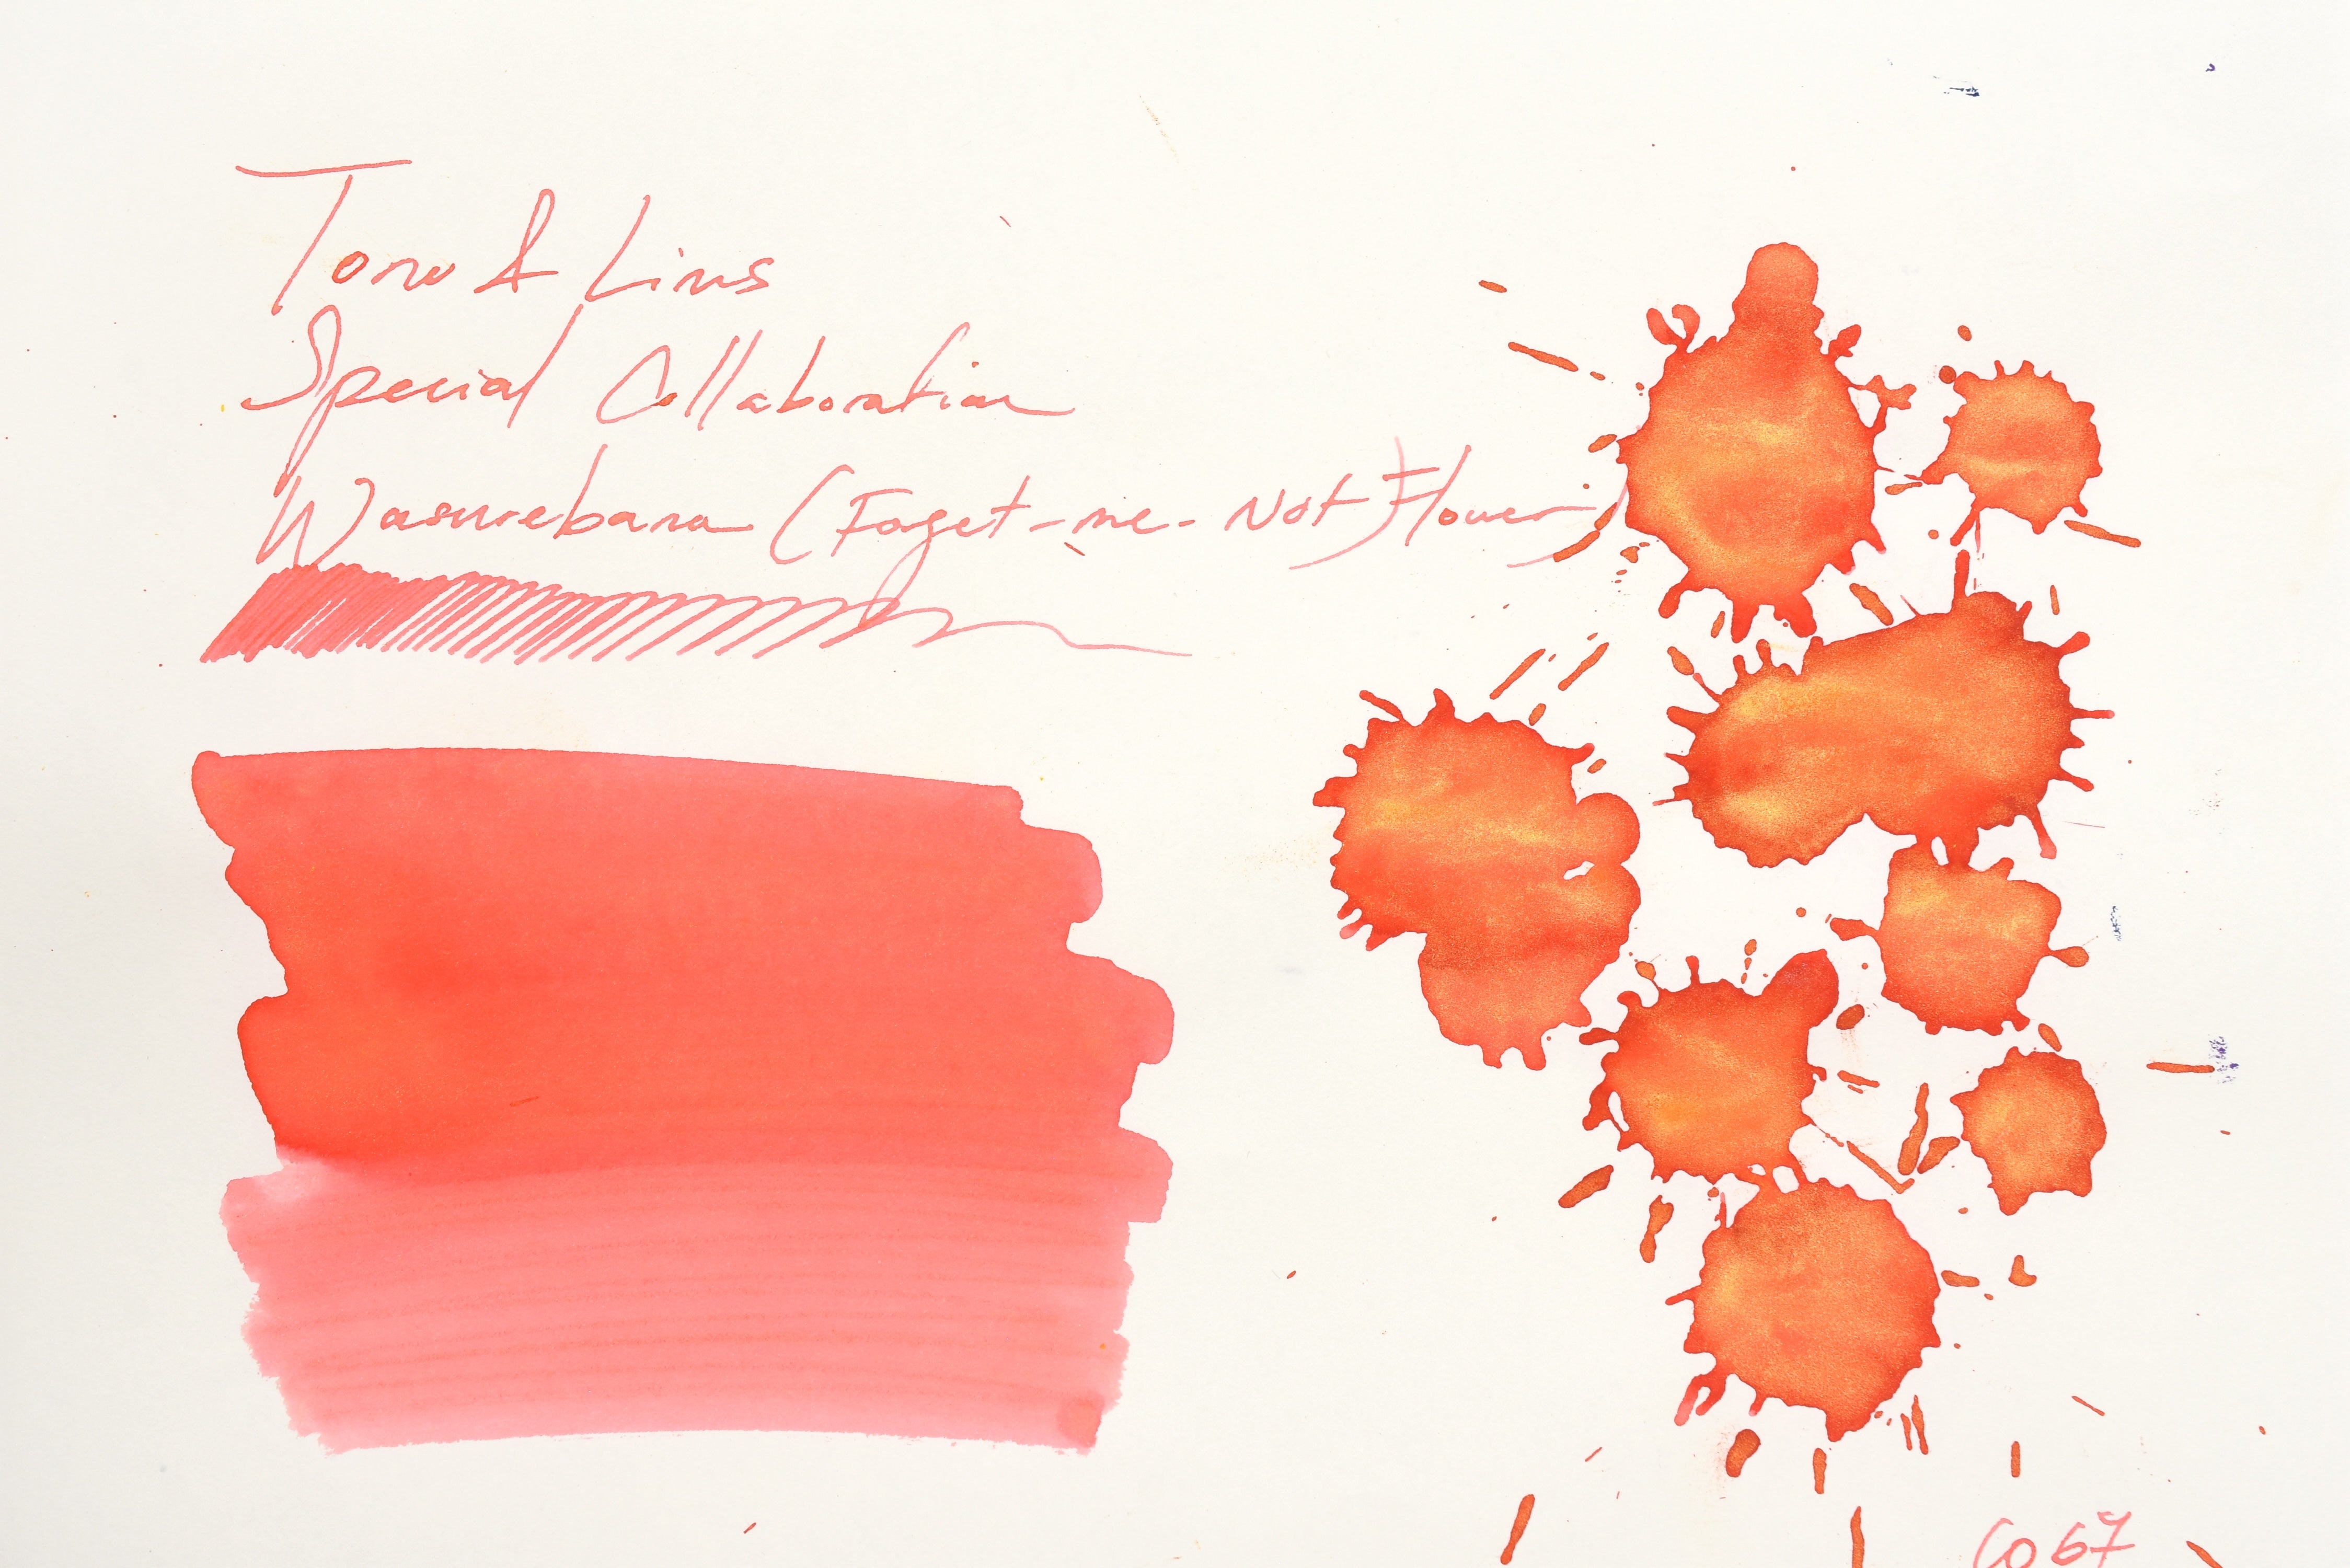 Tono & Lims
Special Collaboration
Wasurebana (Forget-me-Not) Flower)
Co67